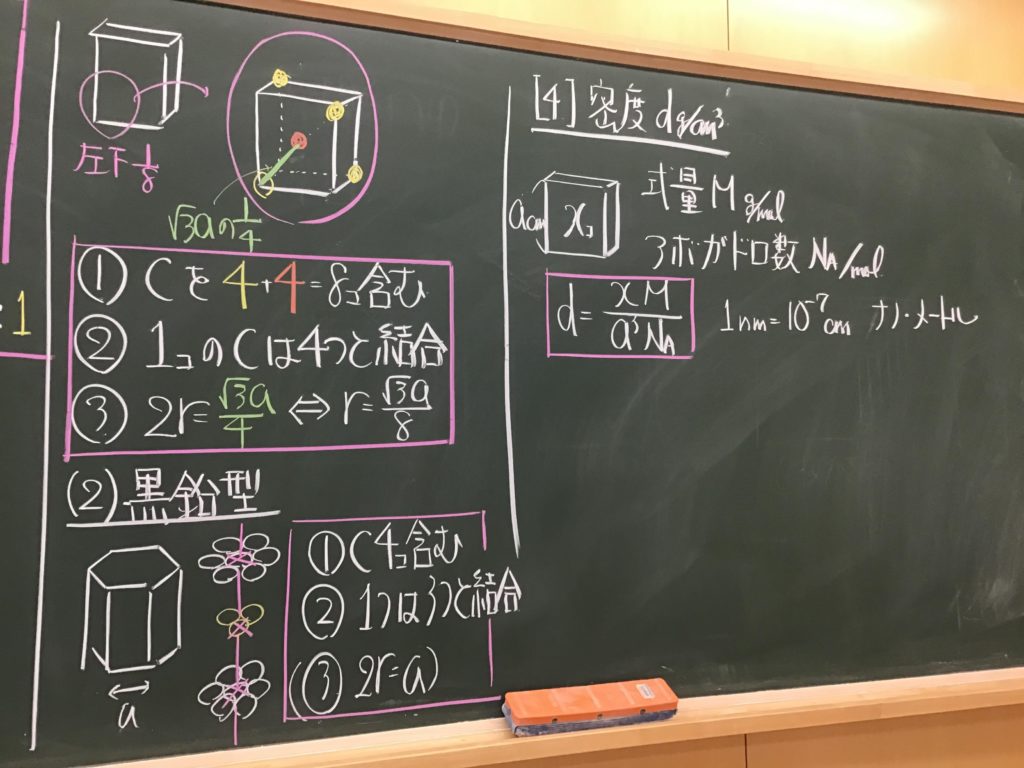 :1
左下 1/8
√3aの 1/4
① Cを 4+4=8コ含む
② 1コのCは4つと結合
③ 2r=√3a/4 ⇔ r=√3a/8
(2) 黒鉛型
a
① C4コ含む
② 1つは3つと結合
(③ 2r=a)
[4] 密度 d g/cm³
a cm
xコ
式量 M g/mol
アボガドロ数 NA/mol
d = xM/a³NA
1nm=10⁻⁷cm ナノ・メートル